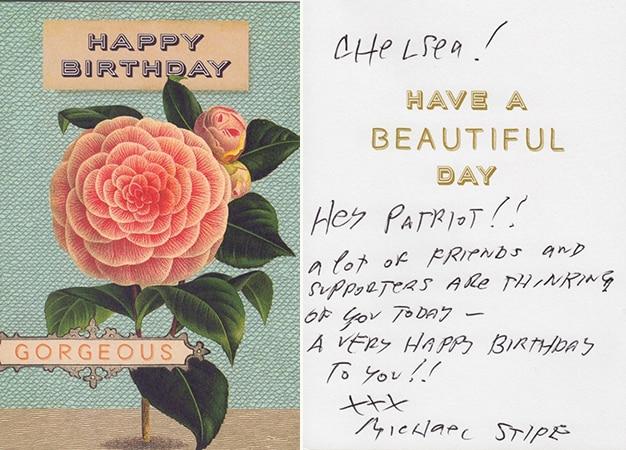 HAPPY
BIRTHDAY
GORGEOUS
CHELSEA!
HAVE A
BEAUTIFUL
DAY
HEY PATRIOT!!
a lot of FRIENDS and
SUPPORTERS ARE THINKING
OF YOU TODAY —
A VERY HAPPY BIRTHDAY
To YOU!!
XXX
MICHAEL STIPE